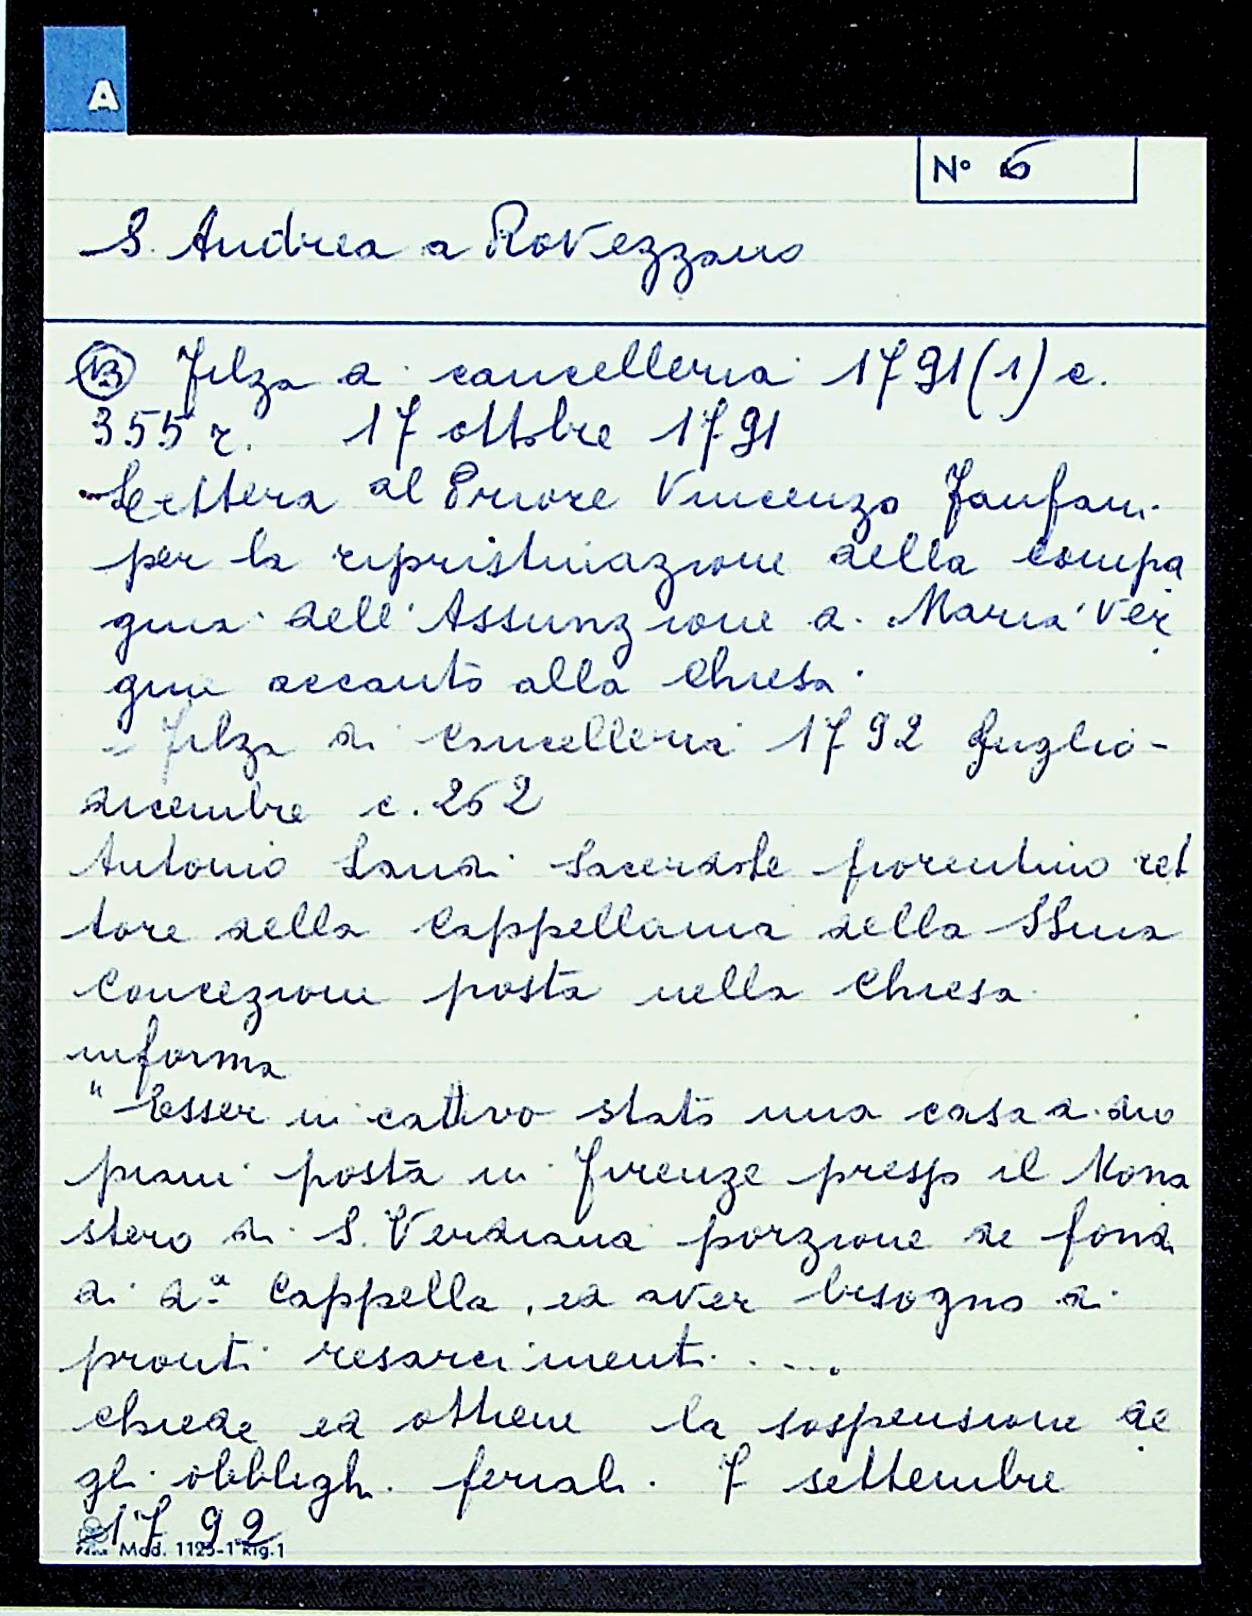 A
N° 6
S. Andrea a Rovezzano
13 Filza di cancelleria 1791(1) c.
355 r. 17 ottobre 1791
- Lettera al Priore Vincenzo Fanfani
per la ripristinazione della compa
gnia dell'Assunzione di Maria Ver
gine accanto alla Chiesa.
- Filza di Cancelleria 1792 Luglio-
dicembre c. 262
Antonio Landi Sacerdote fiorentino ret
tore della Cappellania della SSma
Concezione posta nella Chiesa
informa
"Esser in cattivo stato una casa a due
piani posta in Firenze presso il Mona
stero di S. Verdiana porzione de fondi
di da Cappella, ed aver bisogno di
pronti resarcimenti....
Chiede ed ottiene la sospensione de
gli obblighi feriali. 7 settembre
1792
Mod. 1125-1 Rig.1